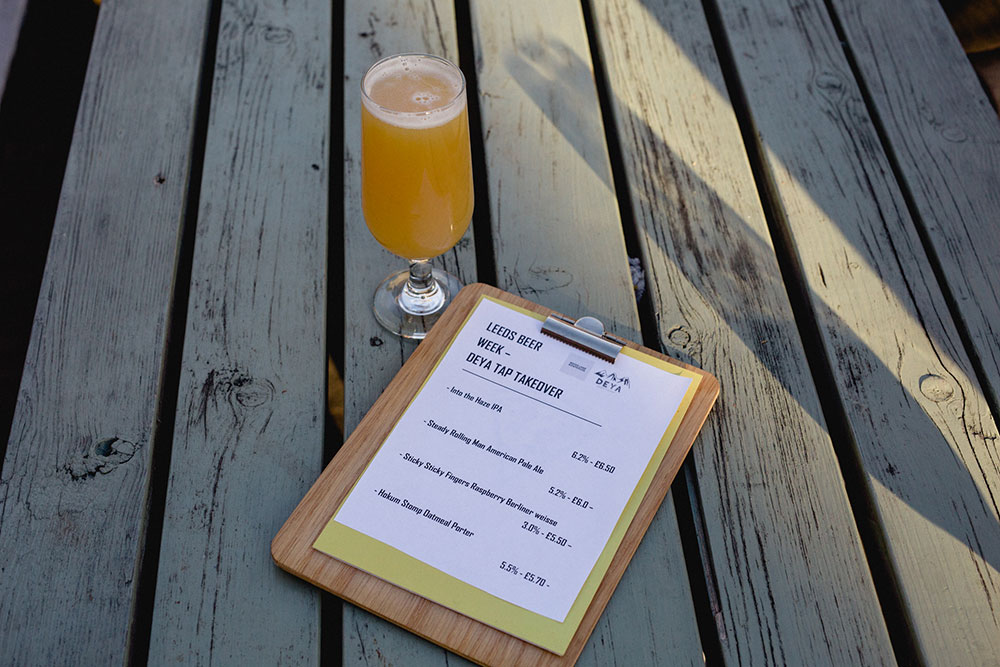 LEEDS BEER
WEEK –
DEYA TAP TAKEOVER
DEYA
- Into the Haze IPA
6.2% - £6.50
- Steady Rolling Man American Pale Ale
5.2% - £6.0 –
- Sticky Sticky Fingers Raspberry Berliner weisse
3.0% - £5.50 –
- Hokum Stomp Oatmeal Porter
5.5% - £5.70 –